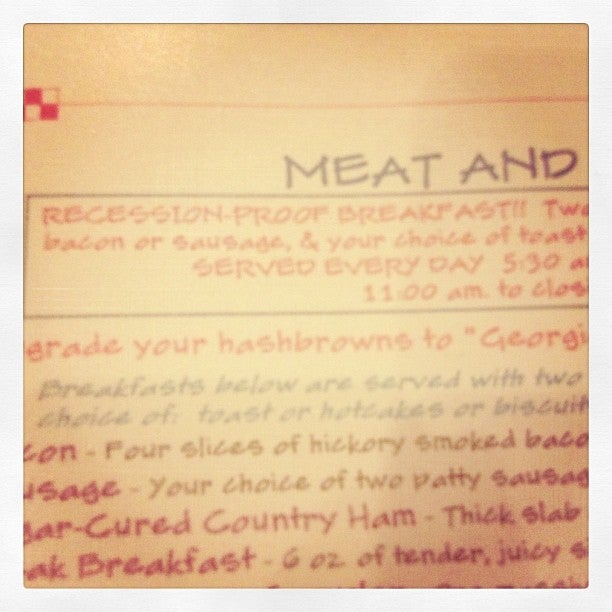 MEAT AND
RECESSION-PROOF BREAKFAST!! Two
bacon or sausage, & your choice of toast
SERVED EVERY DAY 5:30 a
11:00 am. to clos
grade your hashbrowns to "Georgi
Breakfasts below are served with two
choice of: toast or hotcakes or biscuit
con - Four slices of hickory smoked baco
usage - Your choice of two patty sausag
gar-Cured Country Ham - Thick slab
ak Breakfast - 6 oz of tender, juicy si